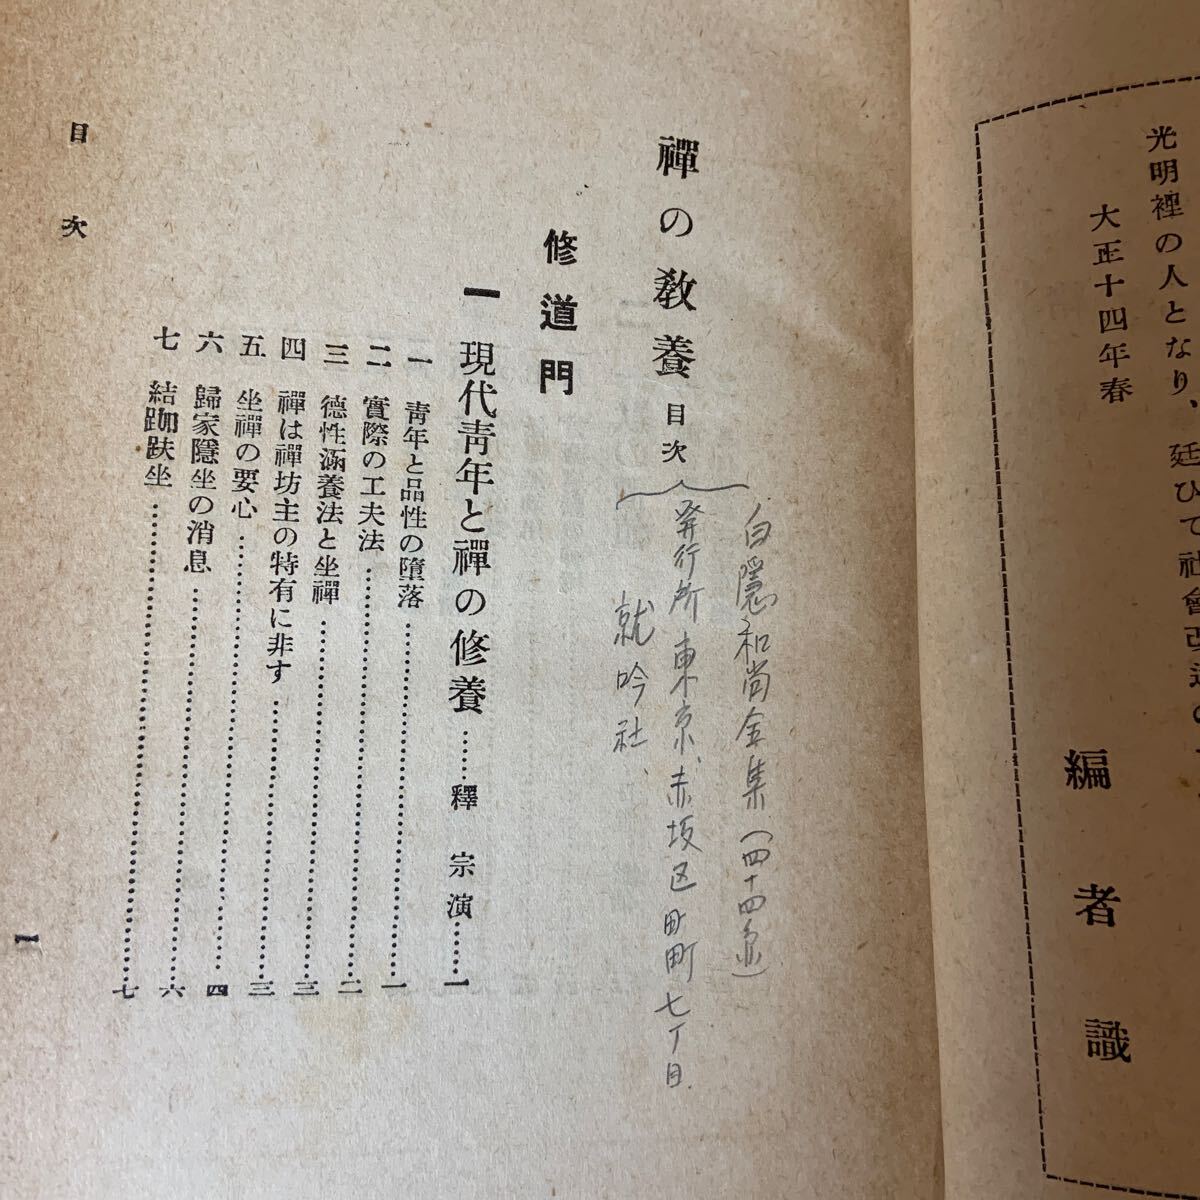 光明裡の人となり、延ひて社會改造の
大正十四年春
編者識
禪の敎養目次
白隠和尚全集(四十四条)
発行所東京、赤坂区田町七丁目
就吟社、
修道門
一 現代靑年と禪の修養……釋宗演……一
一 靑年と品性の墮落……一
二 實際の工夫法……二
三 德性涵養法と坐禪……三
四 禪は禪坊主の特有に非す……三
五 坐禪の要心……四
六 歸家隱坐の消息……六
七 結跏趺坐……七
目次
一